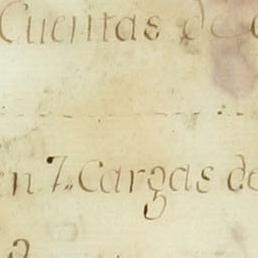 Cuentas de
en 7,, Cargas de